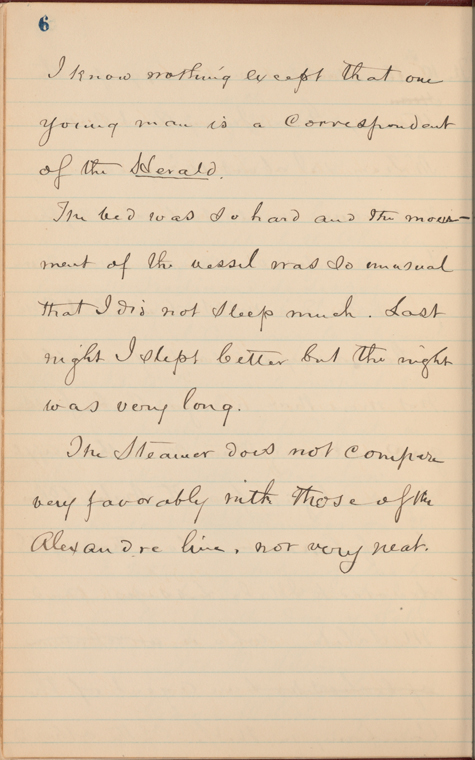 6
I know nothing except that one
young man is a correspondent
of the Herald.
The bed was so hard and the move-
ment of the vessel was so unusual
that I did not sleep much. Last
night I slept better but the night
was very long.
The Steamer does not compare
very favorably with those of the
Alexandre line, nor very neat.